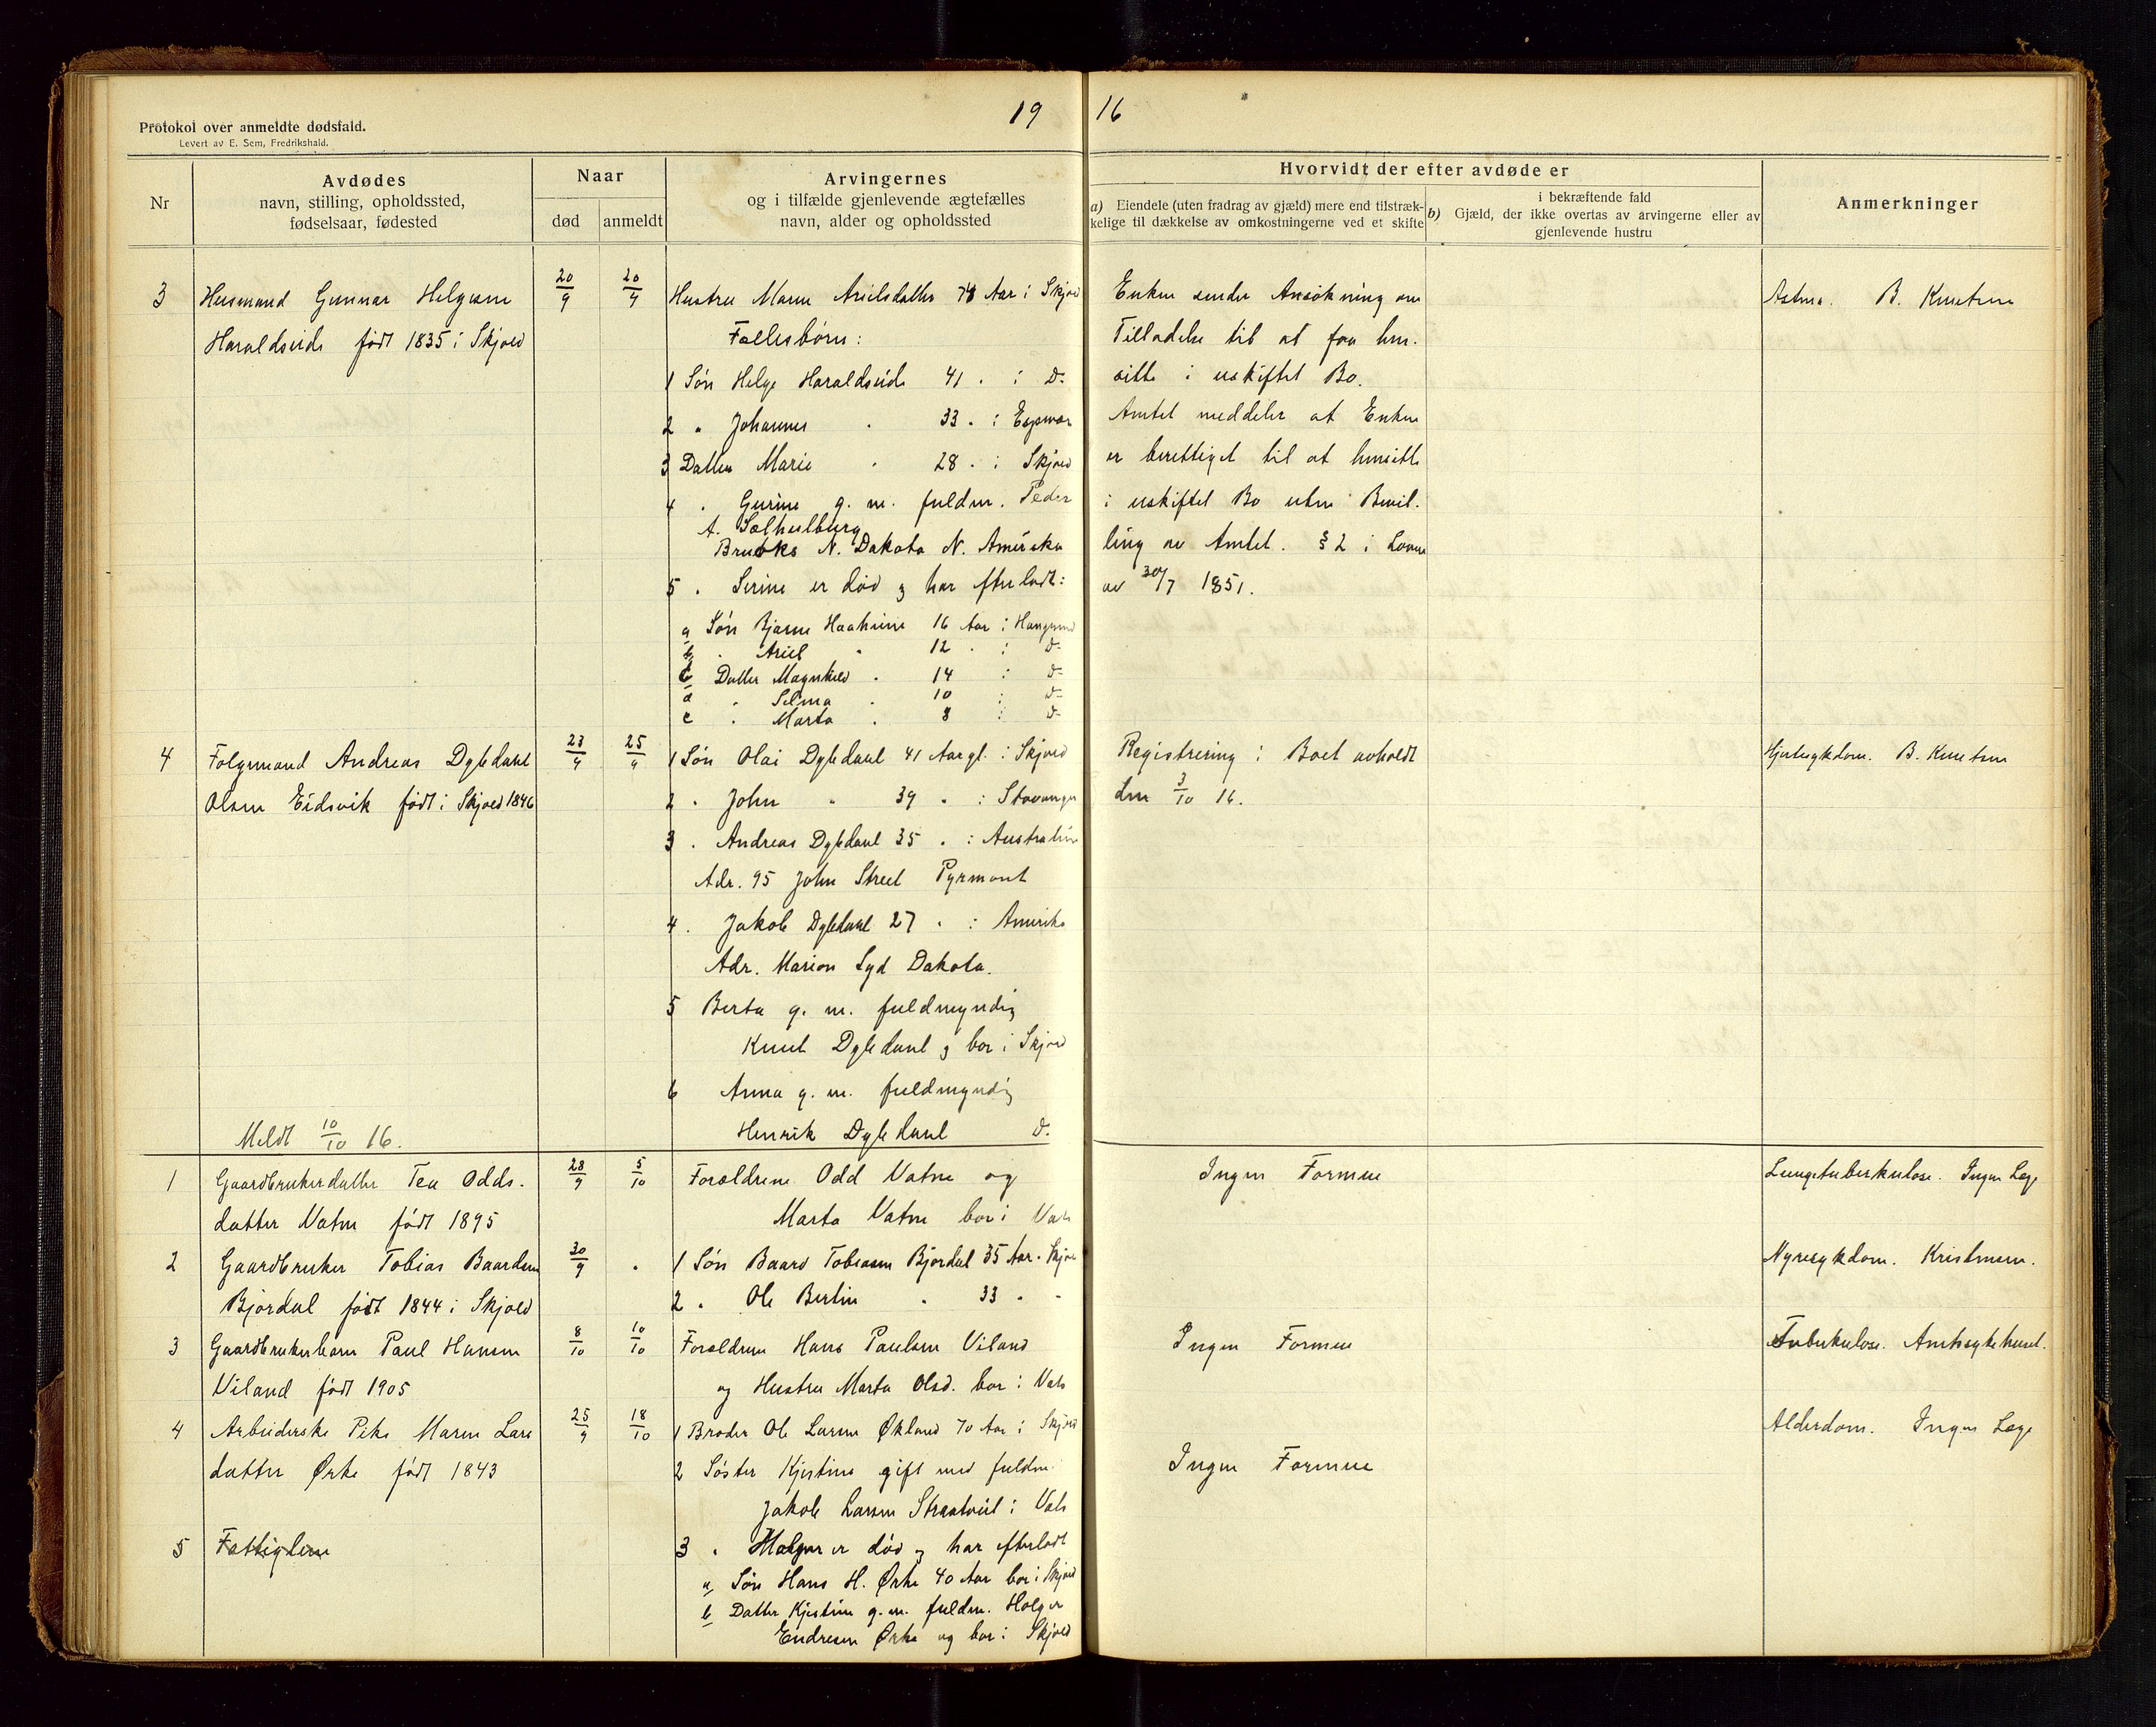 19 16
Protokol over anmeldte dødsfald.
Levert av E. Sem, Fredrikshald.
Nr
Avdødes
navn, stilling, opholdssted,
fødselsaar, fødested
Naar
død
anmeldt
Arvingernes
og i tilfælde gjenlevende ægtefælles
navn, alder og opholdssted
Hvorvidt der efter avdøde er
a) Eiendele (uten fradrag av gjæld) mere end tilstræk-
kelige til dækkelse av omkostningerne ved et skifte
i bekræftende fald
b) Gjæld, der ikke overtas av arvingerne eller av
gjenlevende hustru
Anmerkninger
3 Husmand Gunnar Helgesen
Haraldseide født 1835 i Skjold
20/9 20/9
Hustru Maren Arielsdatter Aar i Skjold
Fællesbörn:
1 Sön Helge Haraldseide 41 . i Do
2 " Johannes . 33 . i
3 Datter Marie . 28 . i Skjold
4 . Gurine g. m. fuldm. Peder
A.
N. Dakota N. Amerika
5 . Serine er död og har efterladt:
a Sön Bjarne 16 Aar i
b . Ariel . 12 . i do
c Datter . 14 i do
d . Selma . 10 i do
e . Marta . 8 i do
Enken sender Ansökning om
Tilladelse til at faa hen-
sitte i uskiftet Bo.
Amtet meddeler at Enken
er berettiget til at hensitte
i uskiftet Bo uten Bevil-
ling av Amtet. § 2 i Loven
av 30/7 1851.
Astma. B. Knutsen
4 Følgemand Andreas Dybdahl
Olsen Eidsvik født i Skjold 1846
23/9 25/9
1 Sön Olai Dybdahl 41 Aar gl. i Skjold
2 . John " 39 . i Stavanger
3 . Andreas Dybdahl 35 . i Australien
Adr. 95 John Street Pyrmont
4 . Jakob Dybdahl 27 . i Amerika
Adr. Marion Syd Dakota.
5 Berta g. m. fuldmyndig
Knut Dybdahl og bor i Skjold
6 Anna g. m. fuldmyndig
Henrik Dybdahl do
Registrering i Boet avholdt
den 3/10 16.
Hjertesykdom. B. Knutsen
Meldt 10/10 16.
1 Gaardbrukerdatter Tea Odds-
datter Vatne født 1895
28/9 5/10
Forældrene Odd Vatne og
Marta Vatne bor i Vats
Ingen Formue
Lungetuberkulose. Ingen Læge
2 Gaardbruker Tobias Baardsen
Bjordal født 1844 i Skjold
30/9 "
1 Sön Baard Tobiasen Bjordal 35 Aar . Skjold
2 . Ole Bertin . 33 . "
Nyresykdom. Kristensen.
3 Gaardbrukerbarn Paul Hansen
Viland født 1905
8/10 10/10
Forældrene Hans Paulsen Viland
og Hustru Marta Olsd. bor i Vats
Ingen Formue
Tuberkulose. Amtssykehuset.
4 Arbeiderske Pike Maren Lars
datter Ørke født 1843
25/9 18/10
1 Broder Ole Larsen Økland 70 Aar i Skjold
2 Söster Kjestina gift med fuldm.
Jakob Larsen i Vats
3 . er död og har efterladt
a Sön Hans H. Ørke 40 Aar bor i Skjold
b Datter Kjestine g. m. fuldm. Holger
Endresen Ørke og bor i Skjold
Ingen Formue
Alderdom. Ingen Læge
5